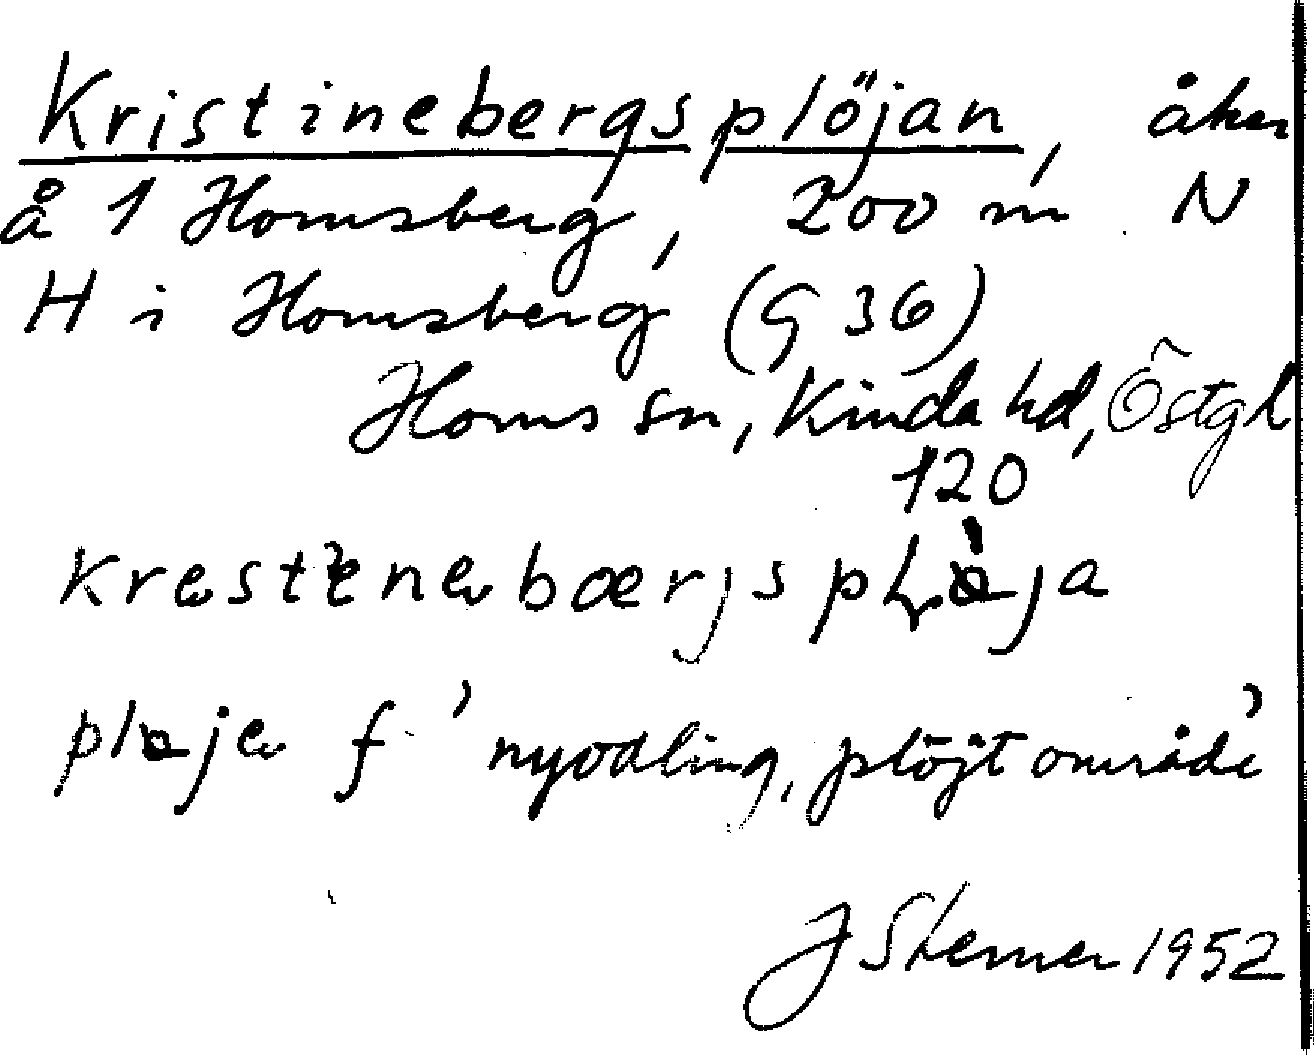 Kristinebergsplöjan, åker
å 1 Homsberg, 200 m N
H i Homsberg (G 36)
Horns sn, Kinda hd, Östgl
120
krestenebærjs pløja
pløje f 'nyodling, plöjt område'
J Sterner 1952